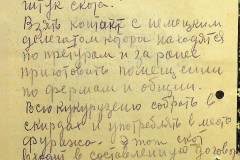 штук скота.
Взять контакт с немецким
делегатом которы находятся
по претурам и за ранее
приготовить помещении
по фермам и общин.
Всю кукурузению собрать в
скирдах и употреблять в место
фуража. Этот скот
входит в составленную договор